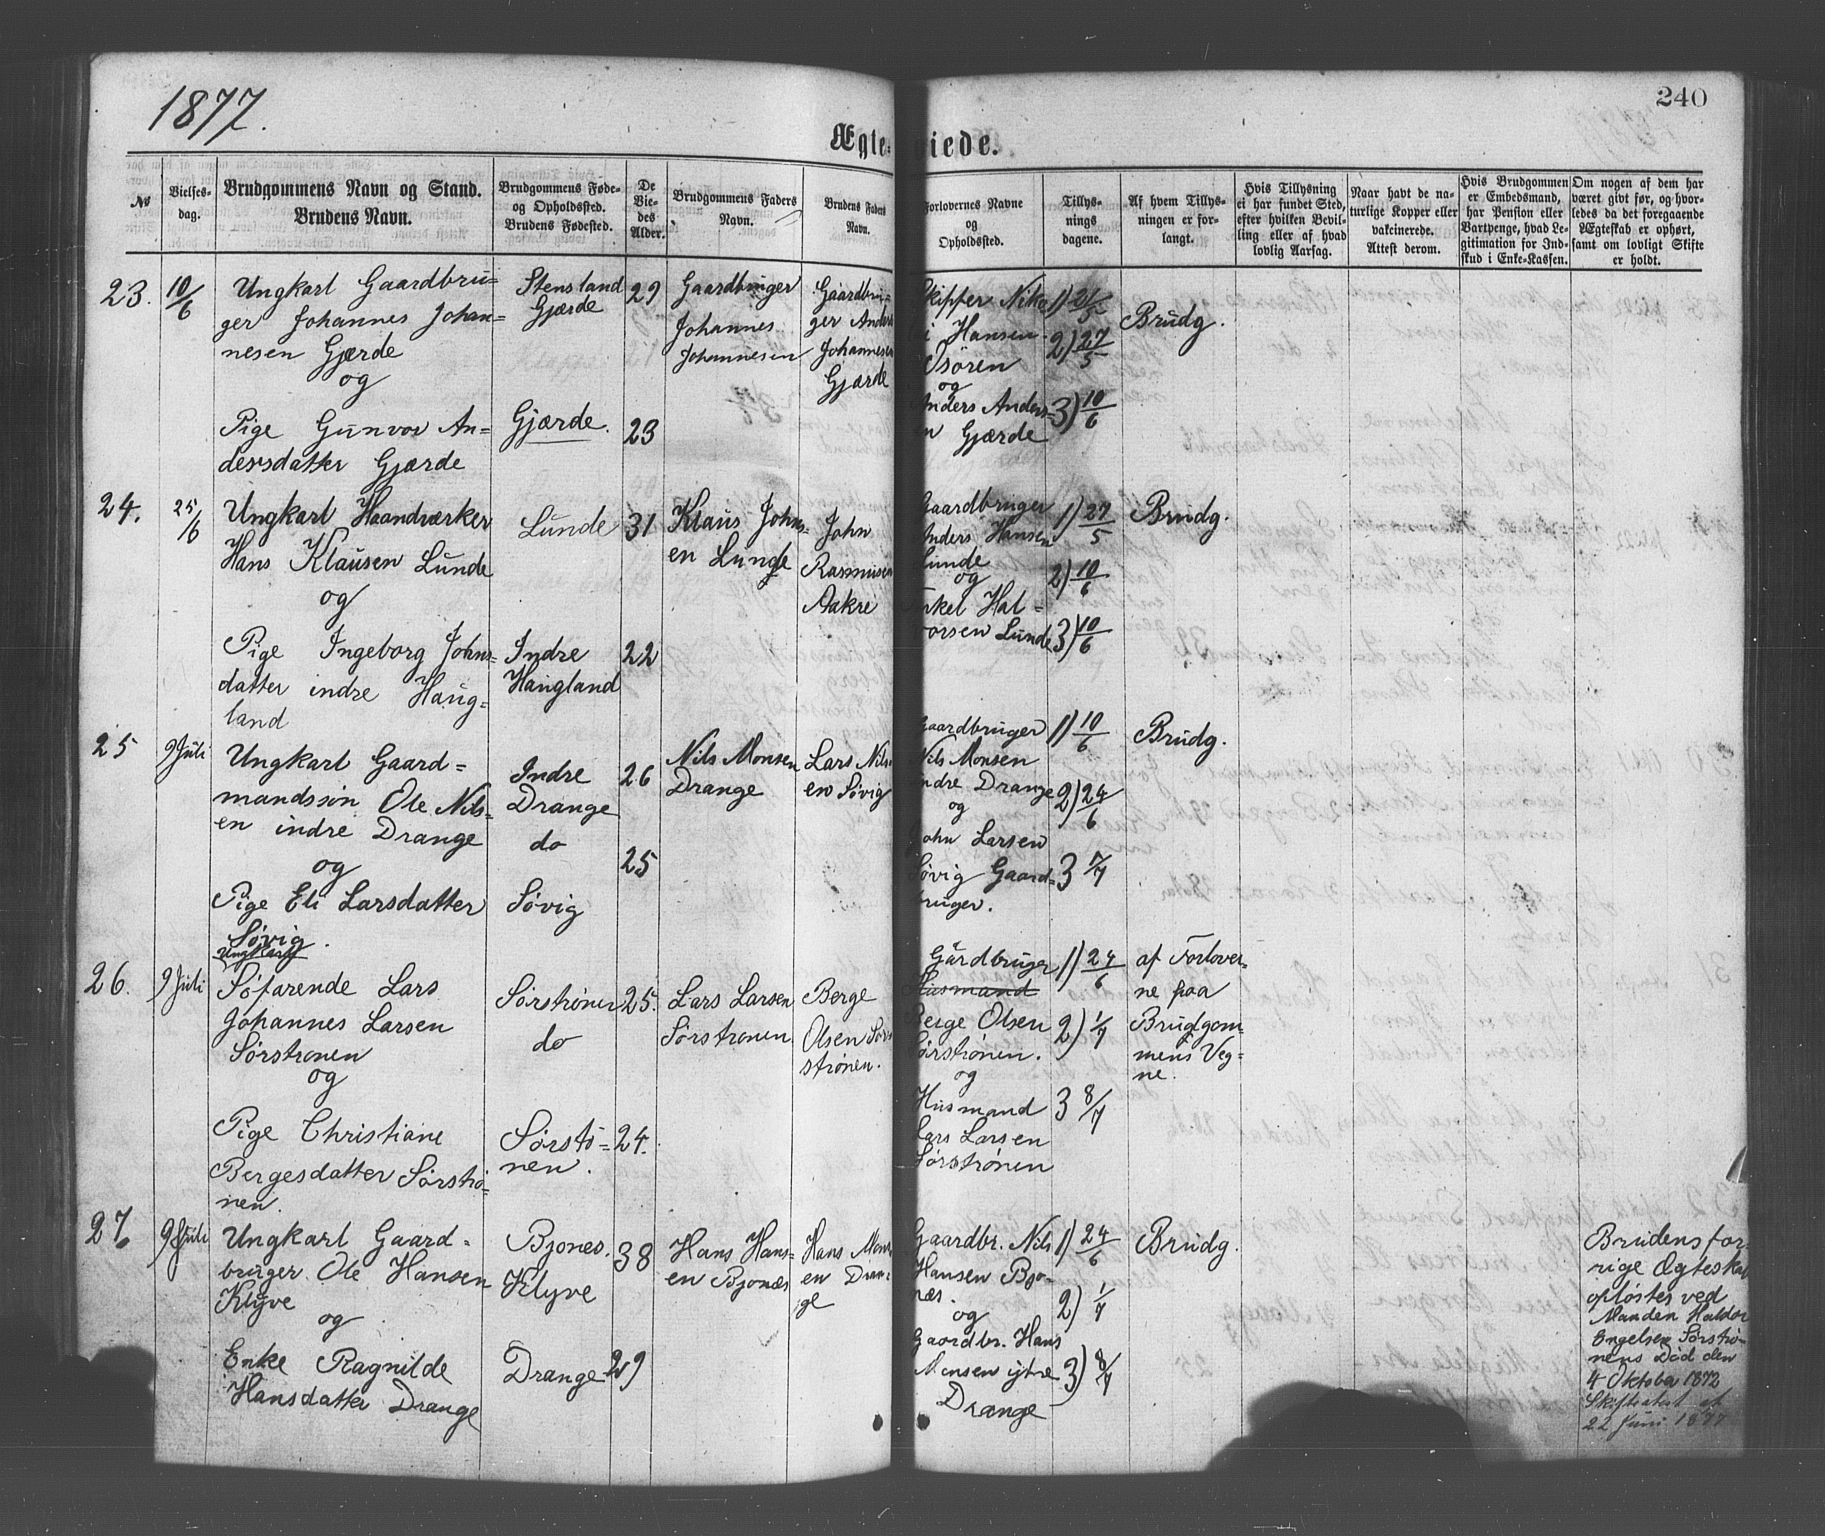 1877.
240
Ægte-viede.
№
Vielses-
dag.
Brudgommens Navn og Stand.
Brudens Navn.
Brudgommens Føde-
og Opholdssted.
Brudens Fødested.
De
Vie-
des
Alder.
Brudgommens Faders
Navn.
Brudens Faders
Navn.
Forlovernes Navne
og
Opholdssted.
Tillys-
nings
dagene.
Af hvem Tillys-
ningen er for-
langt.
Hvis Tillysning
ei har fundet Sted,
efter hvilken Bevil-
ling eller af hvad
lovlig Aarsag.
Naar havt de na-
turlige Kopper eller
vakcinerede.
Attest derom.
Hvis Brudgommen
er Embedsmand,
har Pension eller
Vartpenge, hvad Le-
gitimation for Ind-
skud i Enke-Kassen.
Om nogen af dem har
været givt før, og hvor-
ledes da det foregaaende
Ægteskab er ophørt,
samt om lovligt Skifte
er holdt.
23.
10/6
Ungkarl Gaardbru-
ger Johannes Johan-
nesen Gjærde
og
Pige Gunvor An-
dersdatter Gjærde
Stensland
Gjærde
Gjærde.
29
23
Gaardbruger
Johannes
Johannesen
Gaardbru-
ger Anders
Johannesen
Gjærde
Skipper Niko
i Hansen
Tsøren
og
Anders Anders-
en Gjærde
1) 21/5
2) 27/5
3) 10/6
Brudg.
24.
25/6
Ungkarl Haandværker
Hans Klausen Lunde
og
Pige Ingeborg Johns-
datter indre Haug-
land
Lunde
Indre
Haugland
31
22
Klaus Johns-
en Lunde
John
Rasmusen
Aakre
Gaardbruger
Anders Hansen
Lunde
og
Torkel Hal-
vorsen Lunde
1) 27/5
2) 10/6
3) 10/6
Brudg.
25
9 Juli
Ungkarl Gaard-
mandssøn Ole Nils-
en indre Drange
og
Pige Eli Larsdatter
Søvig.
Indre
Drange
do
Søvig
26
25
Nils Monsen
Drange
Lars Nils-
en Søvig
Gaardbruger
Nils Monsen
indre Drange
og
John Larsen
Søvig Gaard-
bruger.
1) 10/6
2) 24/6
3 7/7
Brudg.
26.
9 Juli
Ungkarl
Søfarende Lars
Johannes Larsen
Sørstrønen
og
Pige Christiane
Bergesdatter Sørstrø-
nen.
Sørstrønen
do
Sørstrø-
nen.
25.
24.
Lars Larsen
Sørstrønen
Berge
Olsen Sør-
strønen.
Gårdbruger
Husmand
Berge Olsen
Sørstrønen.
og
Husmand
Lars Larsen
Sørstrønen
1) 24/6
2) 1/7
3 8/7
af Forlover-
ne paa
Brudgom-
mens Veg-
ne.
27.
9 Juli
Ungkarl Gaard-
bruger Ole Hansen
Klyve
og
Enke Ragnilde
Hansdatter Drange
Bjønes.
Klyve
Drange
38
29
Hans Hans-
en Bjønæs
Hans Mons-
en Dran-
ge
Gaardbr. Nils
Hansen Bjø-
næs.
og
Gaardbr. Hans
Monsen ytre
Drange
1) 24/6
2) 1/7
3) 8/7
Brudg.
Brudens for-
rige Ægteskab
opløstes ved
Manden Haldor
Engelsen Sørstrø-
nens Død den
4 Oktober 1872
Skifteatest af
22 Juni 1877